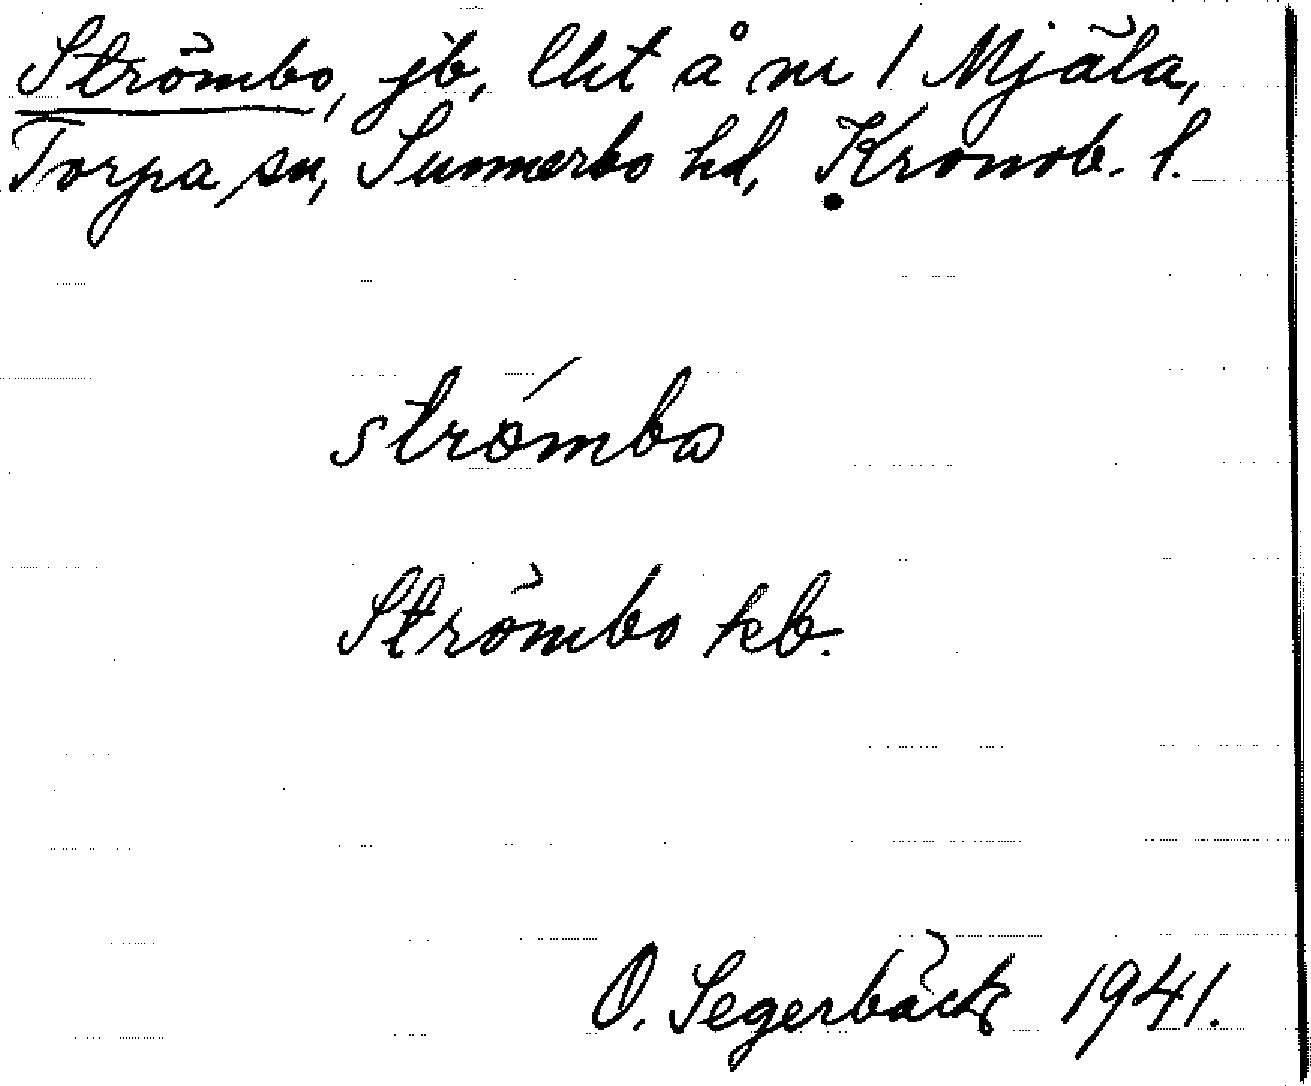 Strömbo, jb, lht å nr 1 Mjäla,
Torpa sn, Sunnerbo hd, Kronob. l.
strömbo
Strömbo kb.
O. Segerbäck 1941.